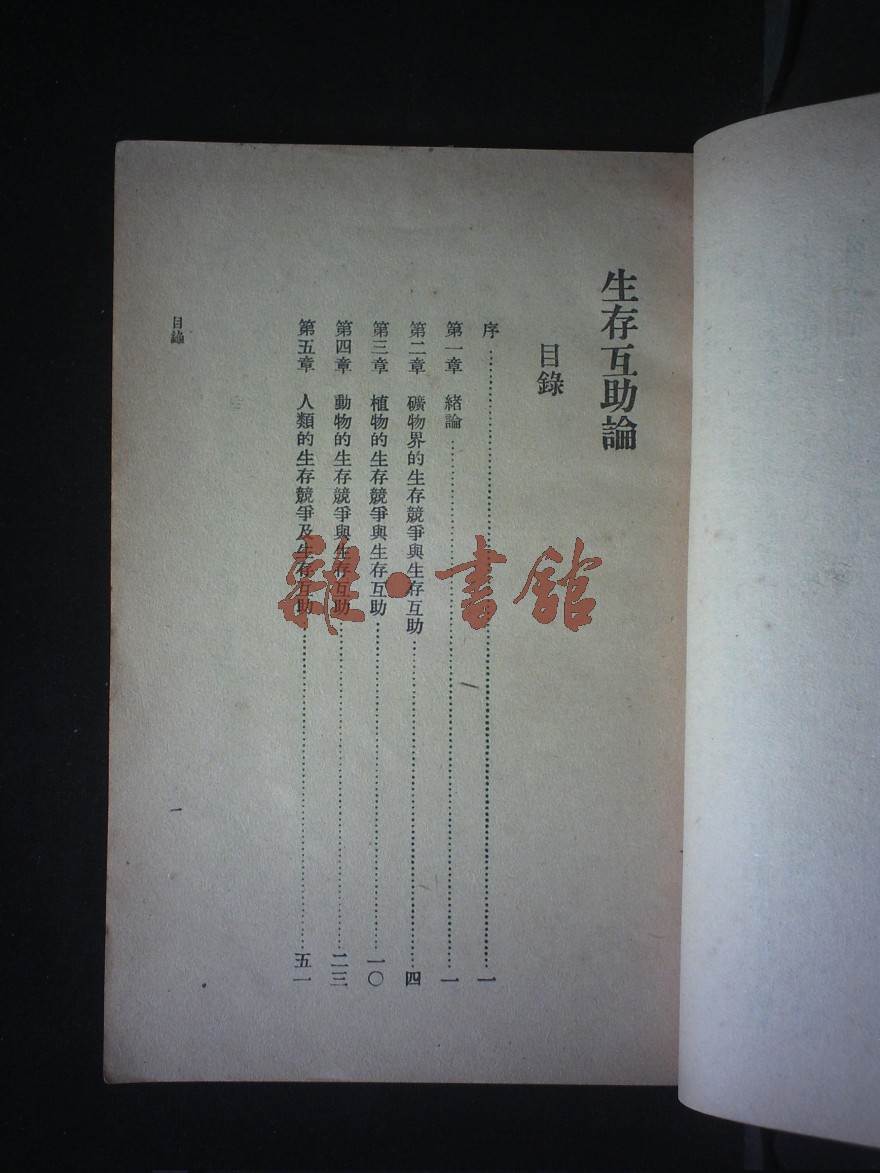 生存互助論
目錄
序……一
第一章 緒論……一
第二章 礦物界的生存競爭與生存互助……四
第三章 植物的生存競爭與生存互助……一〇
第四章 動物的生存競爭與生存互助……二三
第五章 人類的生存競爭及生存互助……五一
目錄
一
雜·書館